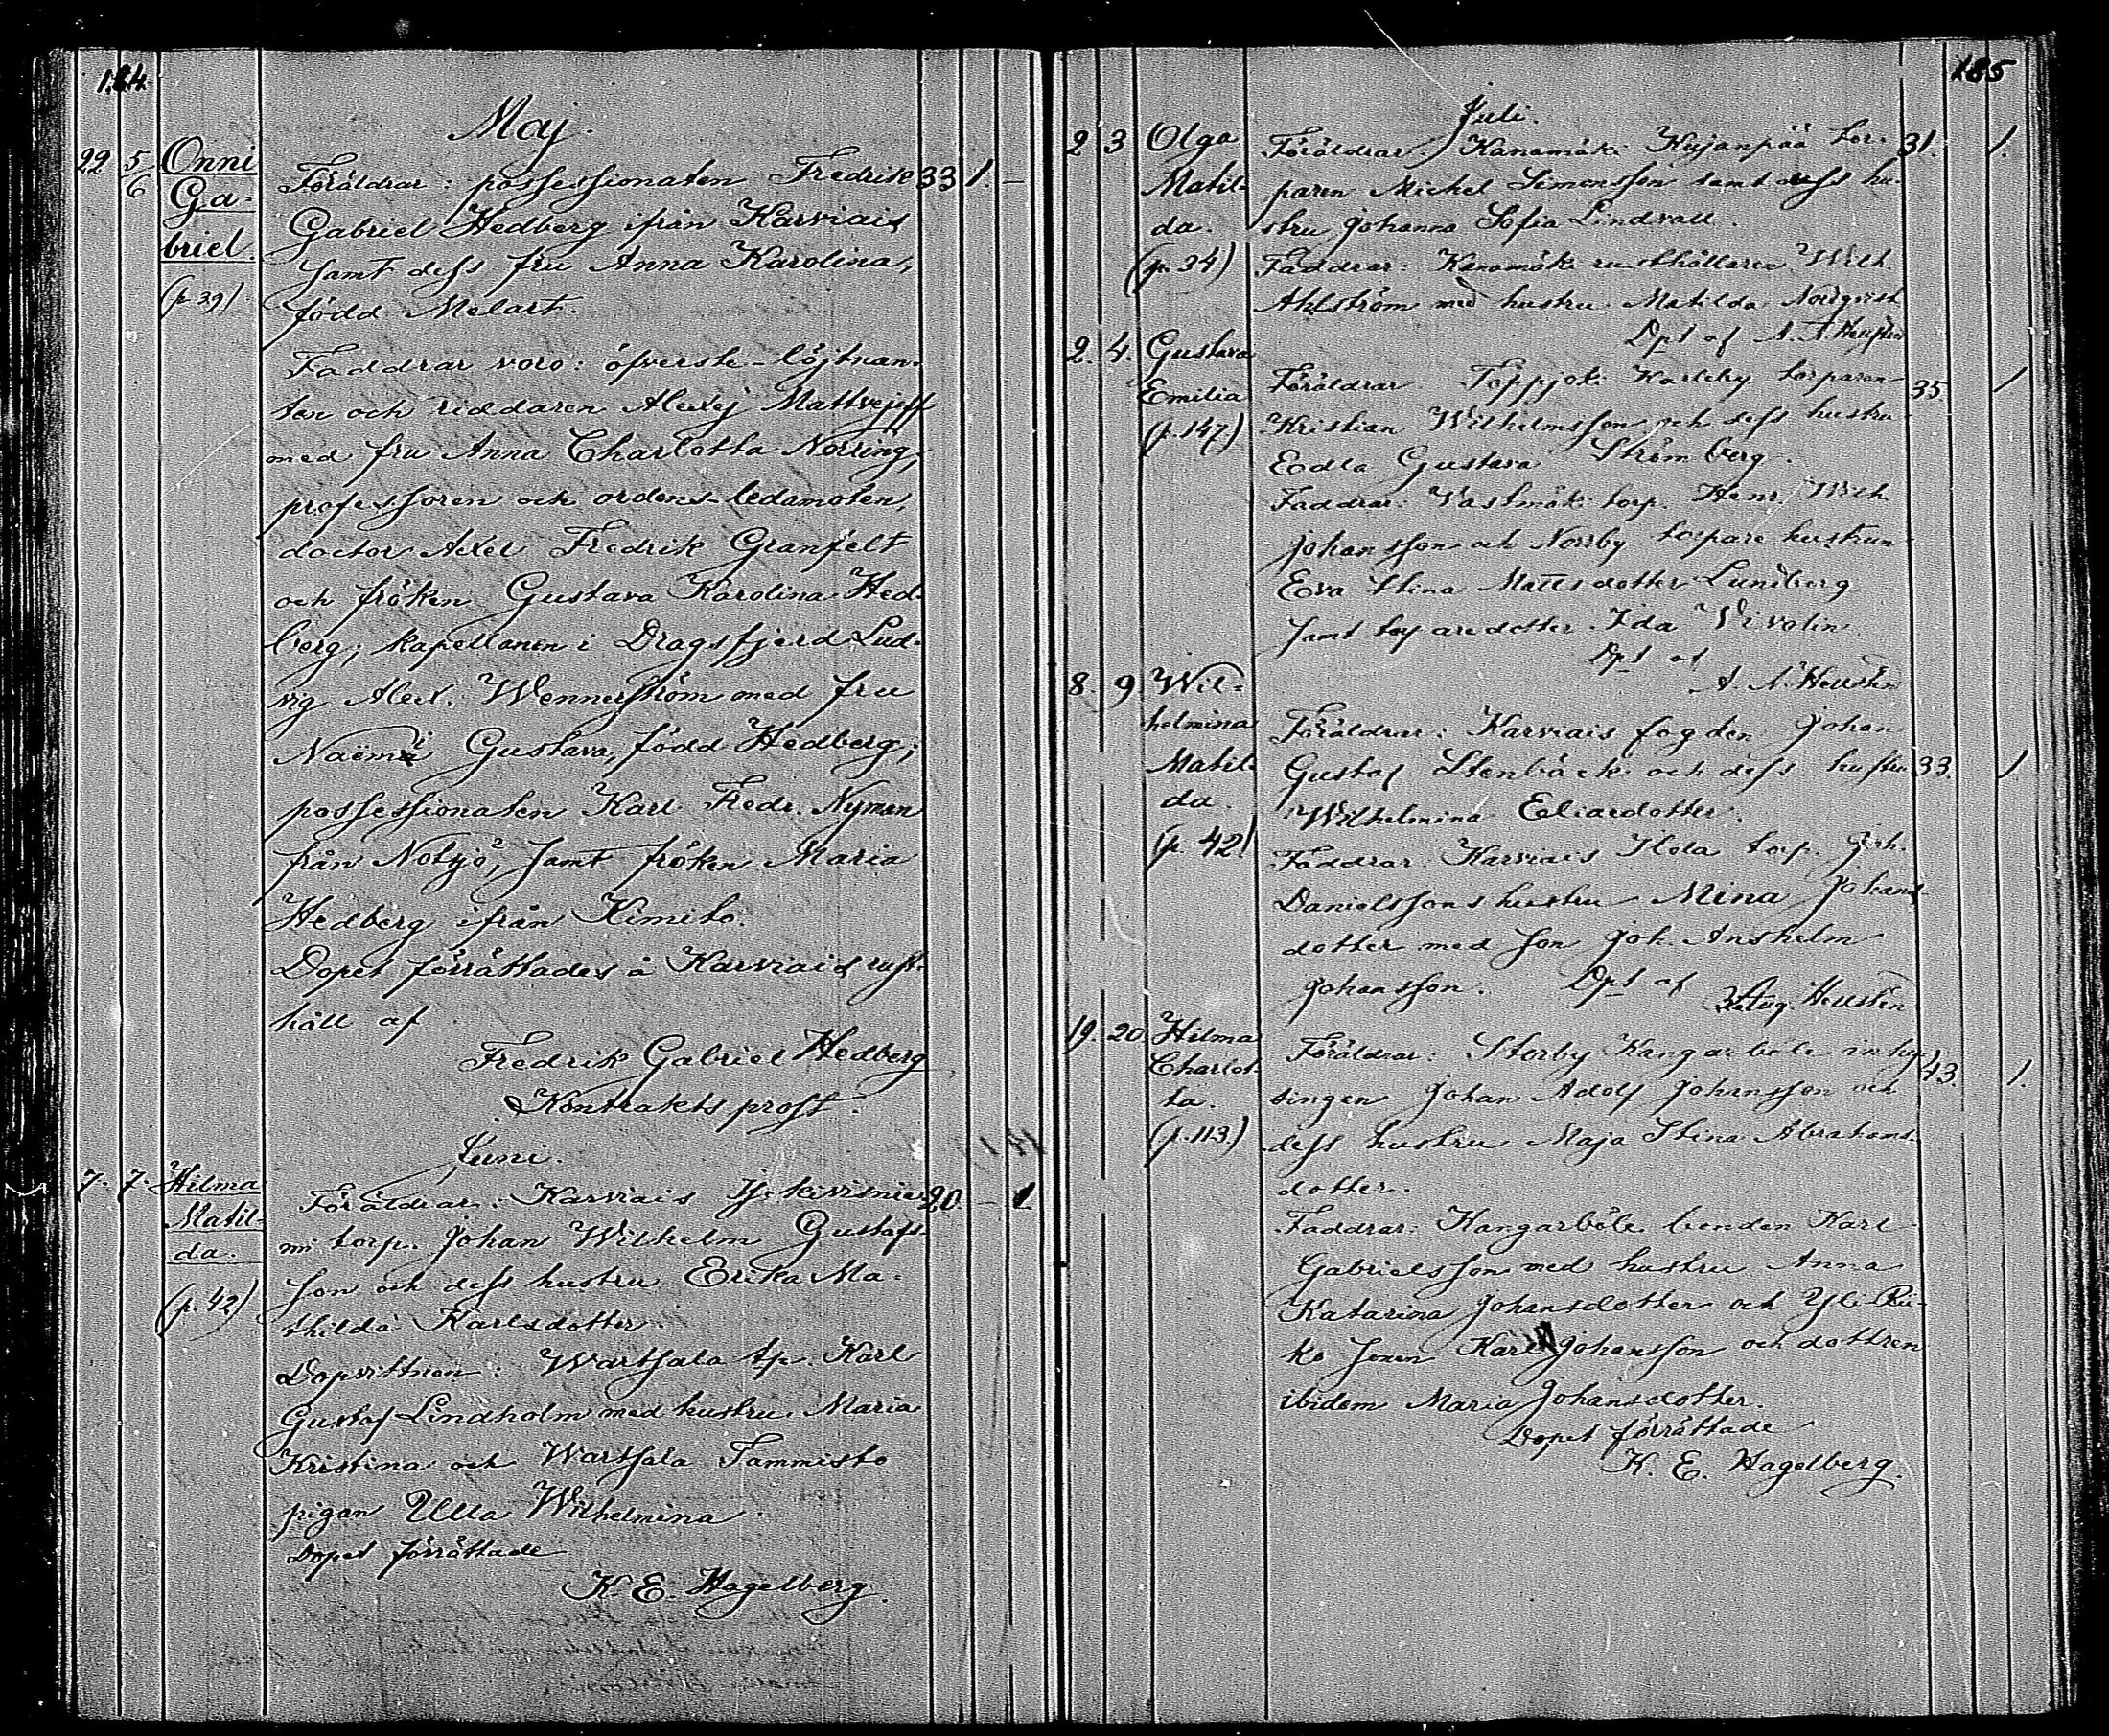 184
Maj.
22 5/6 Onni Gabriel. (p. 39)
Föräldrar: possessionaten Fredrik 33 1. –
Gabriel Hedberg ifrån Karviais
samt dess fru Anna Karolina,
född Melart.
Faddrar voro: öfverste-löjtnan-
ten och riddaren Alexej Mattvejeff
med fru Anna Charlotta Norring;
professoren och ordens-ledamoten,
doctor Axel Fredrik Granfelt
och fröken Gustava Karolina Hed-
berg; kapellanen i Dragsfjerd Lud-
vig Alex. Wennerström med fru
Naëmi Gustava, född Hedberg;
possessionaten Karl Fredr. Nyman
från Notsjö, samt fröken Maria
Hedberg ifrån Kimito.
Dopet förrättades å Karviais rust-
håll af
Fredrik Gabriel Hedberg
Kontrakts prost.
Juni.
7. 7. Hilma Matil-da. (p. 42)
Föräldrar: Karviais 20. – 1.
mi torp. Johan Wilhelm Gustafs-
son och dess hustru Erika Ma-
thilda Karlsdotter.
Dopvittnen: Wartsala tp. Karl
Gustaf Lindholm med hustru Maria
Kristina och Wartsala Tammisto
pigan Ulla Wilhelmina.
Dopet förrättade
K. E. Hagelberg.
185
Juli.
2 3 Olga Matil-da. (p. 34)
Föräldrar Kanamäki Kujanpää tor- 31. 1.
paren Mickel Simonsson samt dess hu-
stru Johanna Sofia Lindvall.
Faddrar: Kanamäki rusthållaren Wilh.
Ahlström med hustru Matilda Nordqvist
Dpt af A. A. Hellsten
2. 4. Gustava Emilia (p. 147)
Föräldrar Töppjoki Karleby torparen 35. 1
Kristian Wilhelmsson och dess hustru
Edla Gustava Strömberg.
Faddrar: Vastamäki torp. Henr. Wilh.
Johansson och Norrby torpare hustrun
Eva Stina Mattsdotter Lundberg
samt torparedotter Ida Vivolin
Dpt af
A. A. Hellsten
8. 9 Wil-helmina Matil-da. (p. 42)
Föräldrar: Karviais fogden Johan
Gustaf Stenbäck och dess hustru 33. 1
Wilhelmina Eliaedotter.
Faddrar: Karviais torp. Joh.
Danielssons hustru Mina Johans
dotter med son Joh. Anshelm
Johansson. Dpt af
Hellsten
19. 20. Hilma Charlot-ta. (p. 113.)
Föräldrar: Storby Kangarböle inhy- 43. 1.
singen Johan Adolf Johansson och
dess hustru Maja Stina Abrahams-
dotter.
Faddrar: Kangarböle bonden Karl
Gabrielsson med hustru Anna
Katarina Johansdotter och Yli-Rii-
ko sonen Karl Johansson och dottren
ibidem Maria Johansdotter.
Dopet förrättade
K. E. Hagelberg.